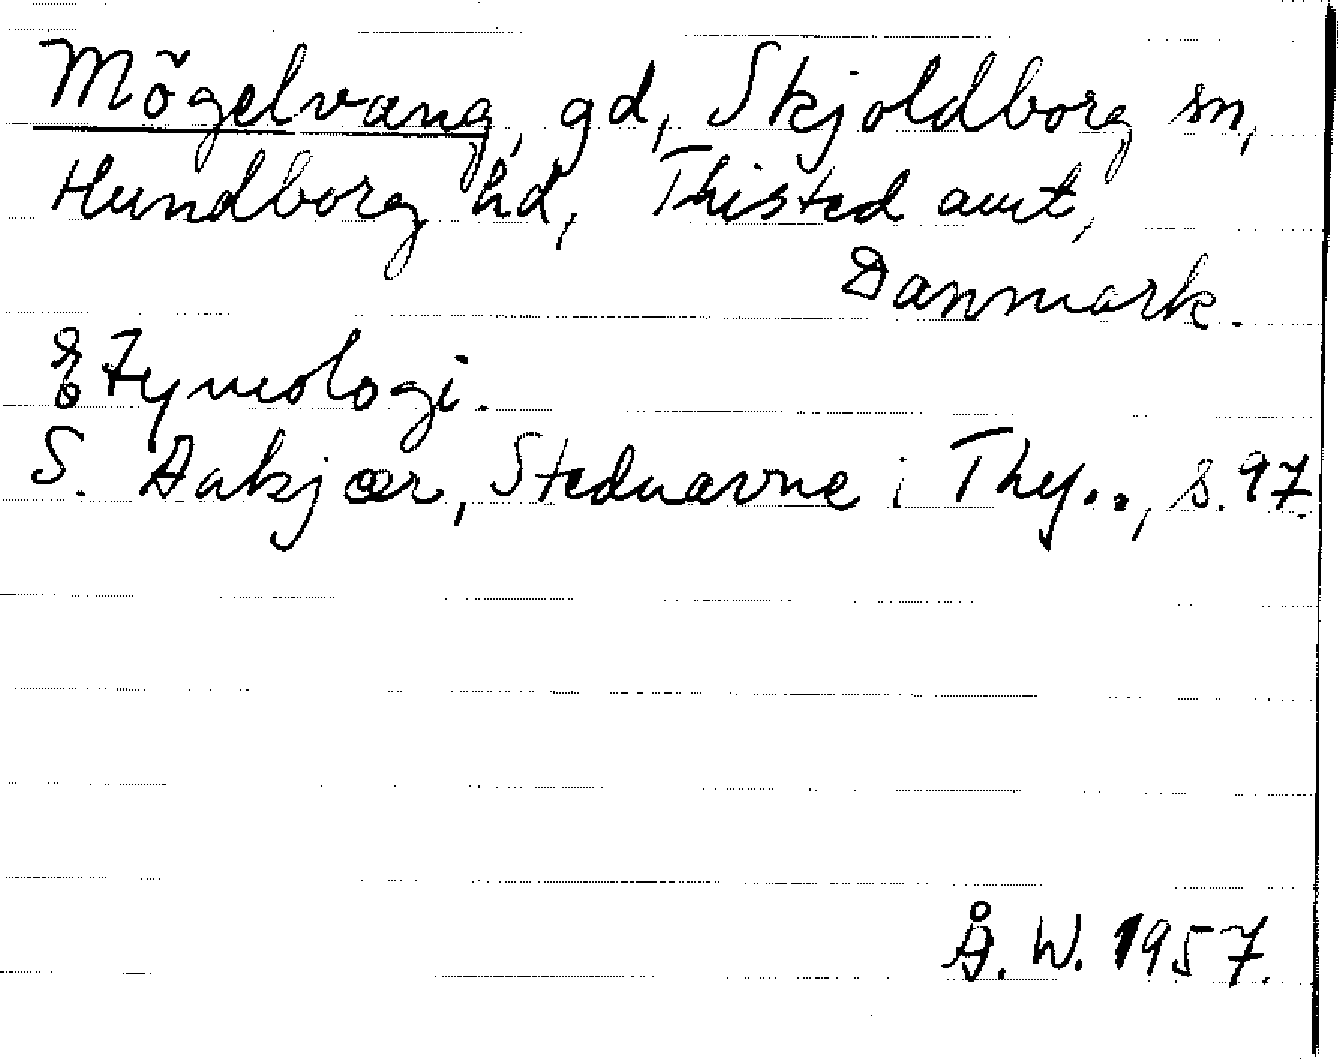 Mögelvang, gd, Skjoldborg sn,
Hundborg hd, Thisted amt,
Danmark.
Etymologi.
S. Aakjær, Stednavne i Thy.., s. 97.
Å. W. 1957.